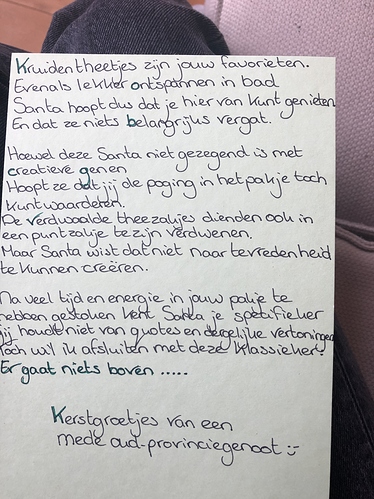 Kruidentheetjes zijn jouw favorieten.
Evenals lekker ontspannen in bad
Santa hoopt dus dat je hier van kunt genieten
En dat ze niets belangrijks vergat.
Hoewel deze Santa niet gezegend is met
creatieve genen
Hoopt ze dat jij de poging in het pakje toch
kunt waarderen.
De verdwaalde theezakjes dienden ook in
een puntzakje te zijn verdwenen.
Maar Santa wist dat niet naar tevredenheid
te kunnen creëren.
Na veel tijd en energie in jouw pakje te
hebben gestoken kent Santa je specifieker
jij houdt niet van quotes en dergelijke vertoningen
Toch wil ik afsluiten met deze klassieker!
Er gaat niets boven .....
Kerstgroetjes van een
mede oud-provinciegenoot :-)